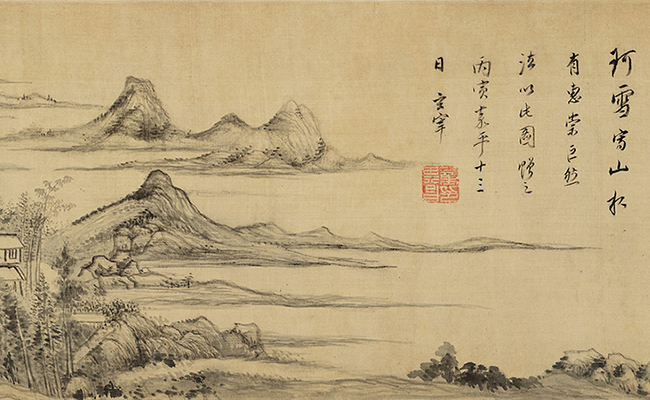 珂雪寫山
有惠崇巨然
法以此圖贈之
丙寅嘉平十三
日 玄宰